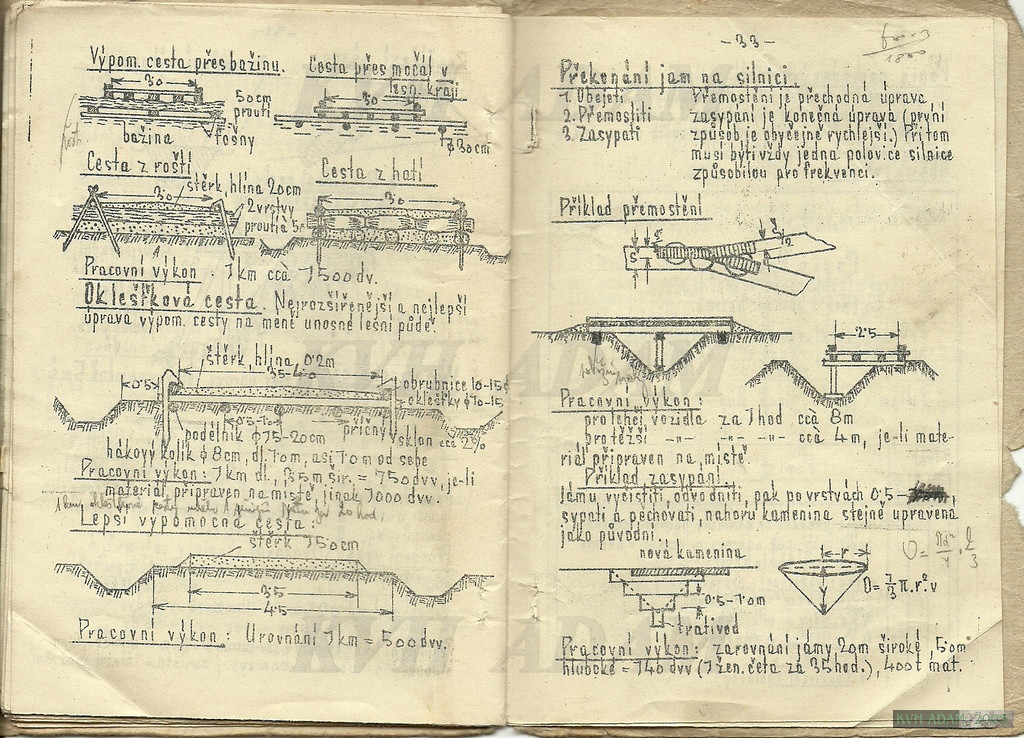 Výpom. cesta přes bažinu.
3·0
50cm
proutí
bažina
fošny
Cesta přes močál v
lesn. kraji
3·0
φ 30cm
Cesta z roští
štěrk, hlína 20cm
3·0
2 vrstvy
proutí à 5c
Cesta z hatí
3·0
Pracovní výkon : 1 km ccà 1500 dv.
Oklešťková cesta. Nejrozšířenější a nejlepší
úprava výpom. cesty na méně únosné lesní půdě.
štěrk, hlína, 0·2m
3·5-4·0
0·5
obrubnice 10-15c
oklešťky φ 10-15
0·5-1·0
podélník φ 15-20cm
příčný
sklon ccà 2%
hákový kolík φ 8cm, dl. 1·0m, asi 1·0m od sebe
Pracovní výkon : 1 km dl., 3·5m šir. = 750 dvv, je-li
materiál připraven na místě, jinak 1000 dvv.
Lepší výpomocná cesta :
štěrk 150cm
3·5
4·5
Pracovní výkon : Urovnání 1 km = 500 dvv.
-33-
Překonání jam na silnici.
1. Obejeti
2. Přemostiti
3. Zasypati
Přemostění je přechodná úprava
zasypání je konečná úprava (první
způsob je obyčejně rychlejší.) Při tom
musí býti vždy jedna polov.ce silnice
způsobilou pro frekvenci.
Příklad přemostění
S
2·5
Pracovní výkon :
pro lehčí vozidla za 1 hod ccà 8m
pro těžší -"- -"- -"- ccà 4m, je-li mate-
riál připraven na místě.
Příklad zasypání.
Jámu vyčistiti, odvodniti, pak po vrstvách 0·5-
sypati a pěchovati, nahoru kamenina stejně upravená
jako původní.
nová kamenina
0·5-1·0m
trativod
r
v
O = 1/3 π.r.²v
Pracovní výkon : zarovnání jámy, 20m široké, 5·0m
hluboké = 140 dvv (1 žen. četa za 3·5 hod.), 400t mat.
KVH ADAM